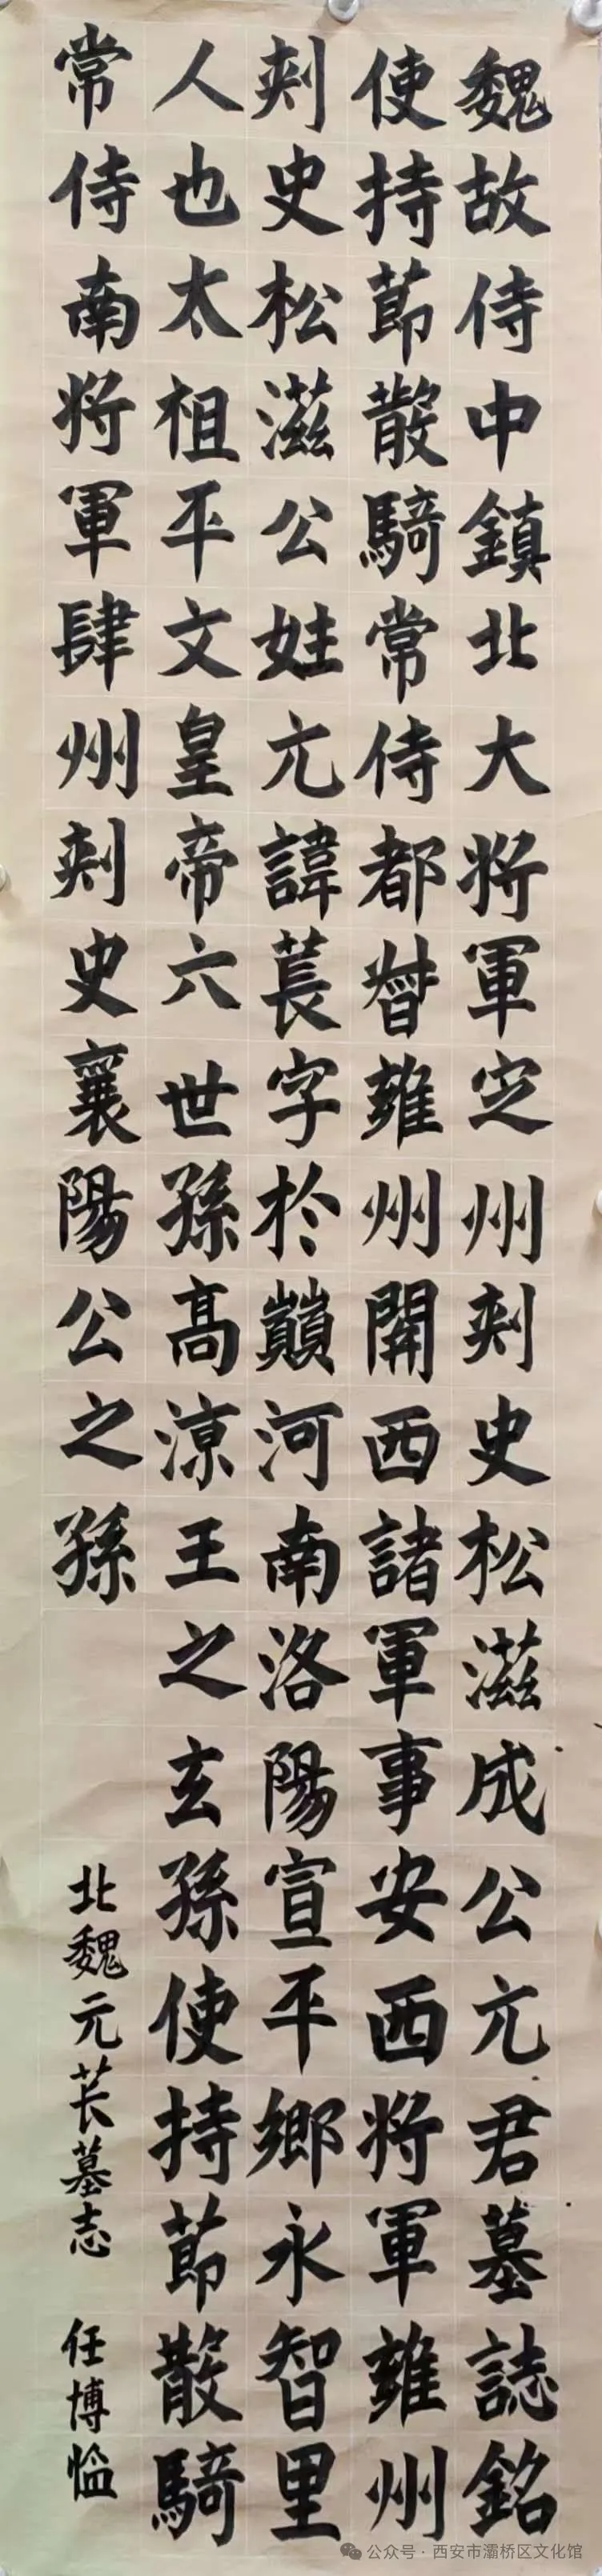 魏故侍中鎮北大將軍定州刺史松滋成公元君墓誌銘
使持節散騎常侍都督雍州關西諸軍事安西將軍雍州
刺史松滋公姓元諱萇字於巔河南洛陽宣平鄉永智里
人也太祖平文皇帝六世孫高涼王之玄孫使持節散騎
常侍南將軍肆州刺史襄陽公之孫
北魏元苌墓志 任博
公众号·西安市灞桥区文化馆